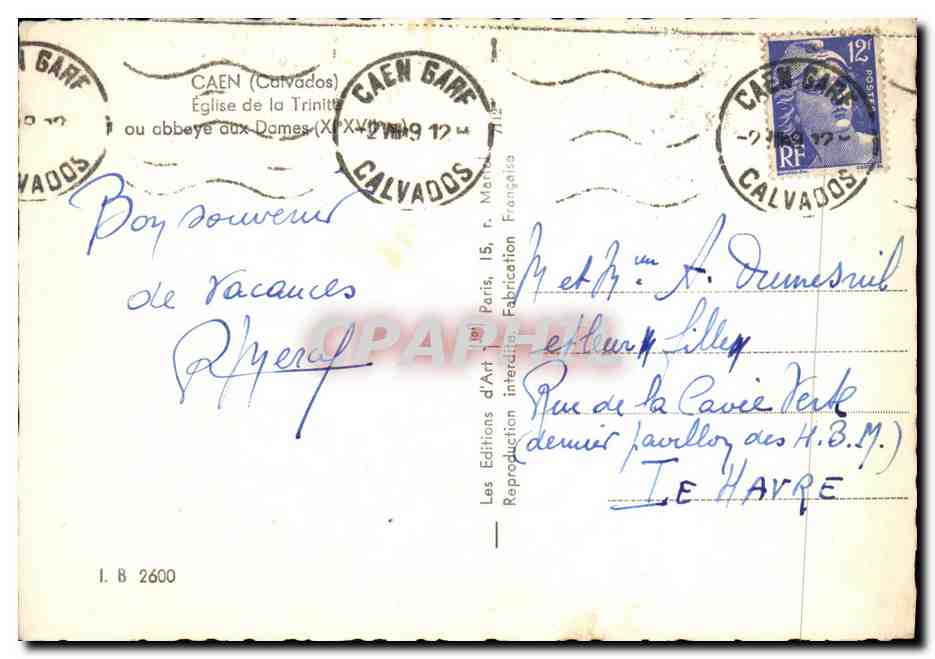 CAEN (Calvados)
Église de la Trinité
ou abbaye aux Dames
CAEN GARE
12
CALVADOS
CAEN GARE
-2 VIII 49 12
CALVADOS
CAEN GARE
CALVADOS
12F
POSTES
RF
Bon souvenir
de Vacances
Les Editions d'Art Paris, 15, r. Martel
Reproduction interdite. Fabrication Française
M et Mme A. Dumesnil
et leur fille
Rue de la Cavée Verte
(dernier pavillon des H.B.M.)
LE HAVRE
CPAPHIL
I. B 2600